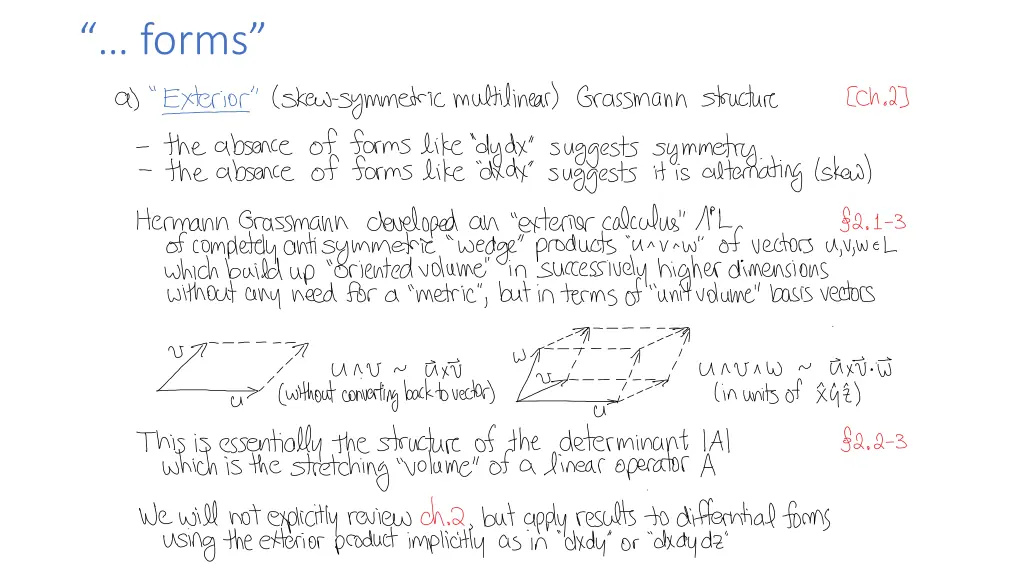 “… forms”
a) "Exterior" (skew-symmetric multilinear) Grassmann structure [ch.2]
- the absence of forms like "dydx" suggests symmetry.
- the absence of forms like "dxdx" suggests it is alternating (skew)
Hermann Grassmann developed an "exterior calculus" ΛᵖL §2.1-3
of completely antisymmetric "wedge" products "u∧v∧w" of vectors u,v,w∈L
which build up "oriented volume" in successively higher dimensions
without any need for a "metric", but in terms of "unit volume" basis vectors
v
u
u∧v ~ u⃗×v⃗
(without converting back to vector)
w
v
u
u∧v∧w ~ u⃗×v⃗·w⃗
(in units of x̂ŷẑ)
This is essentially the structure of the determinant |A| §2.2-3
which is the stretching "volume" of a linear operator A
We will not explicitly review ch.2, but apply results to differntial forms
using the exterior product implicitly as in "dxdy" or "dxdydz"